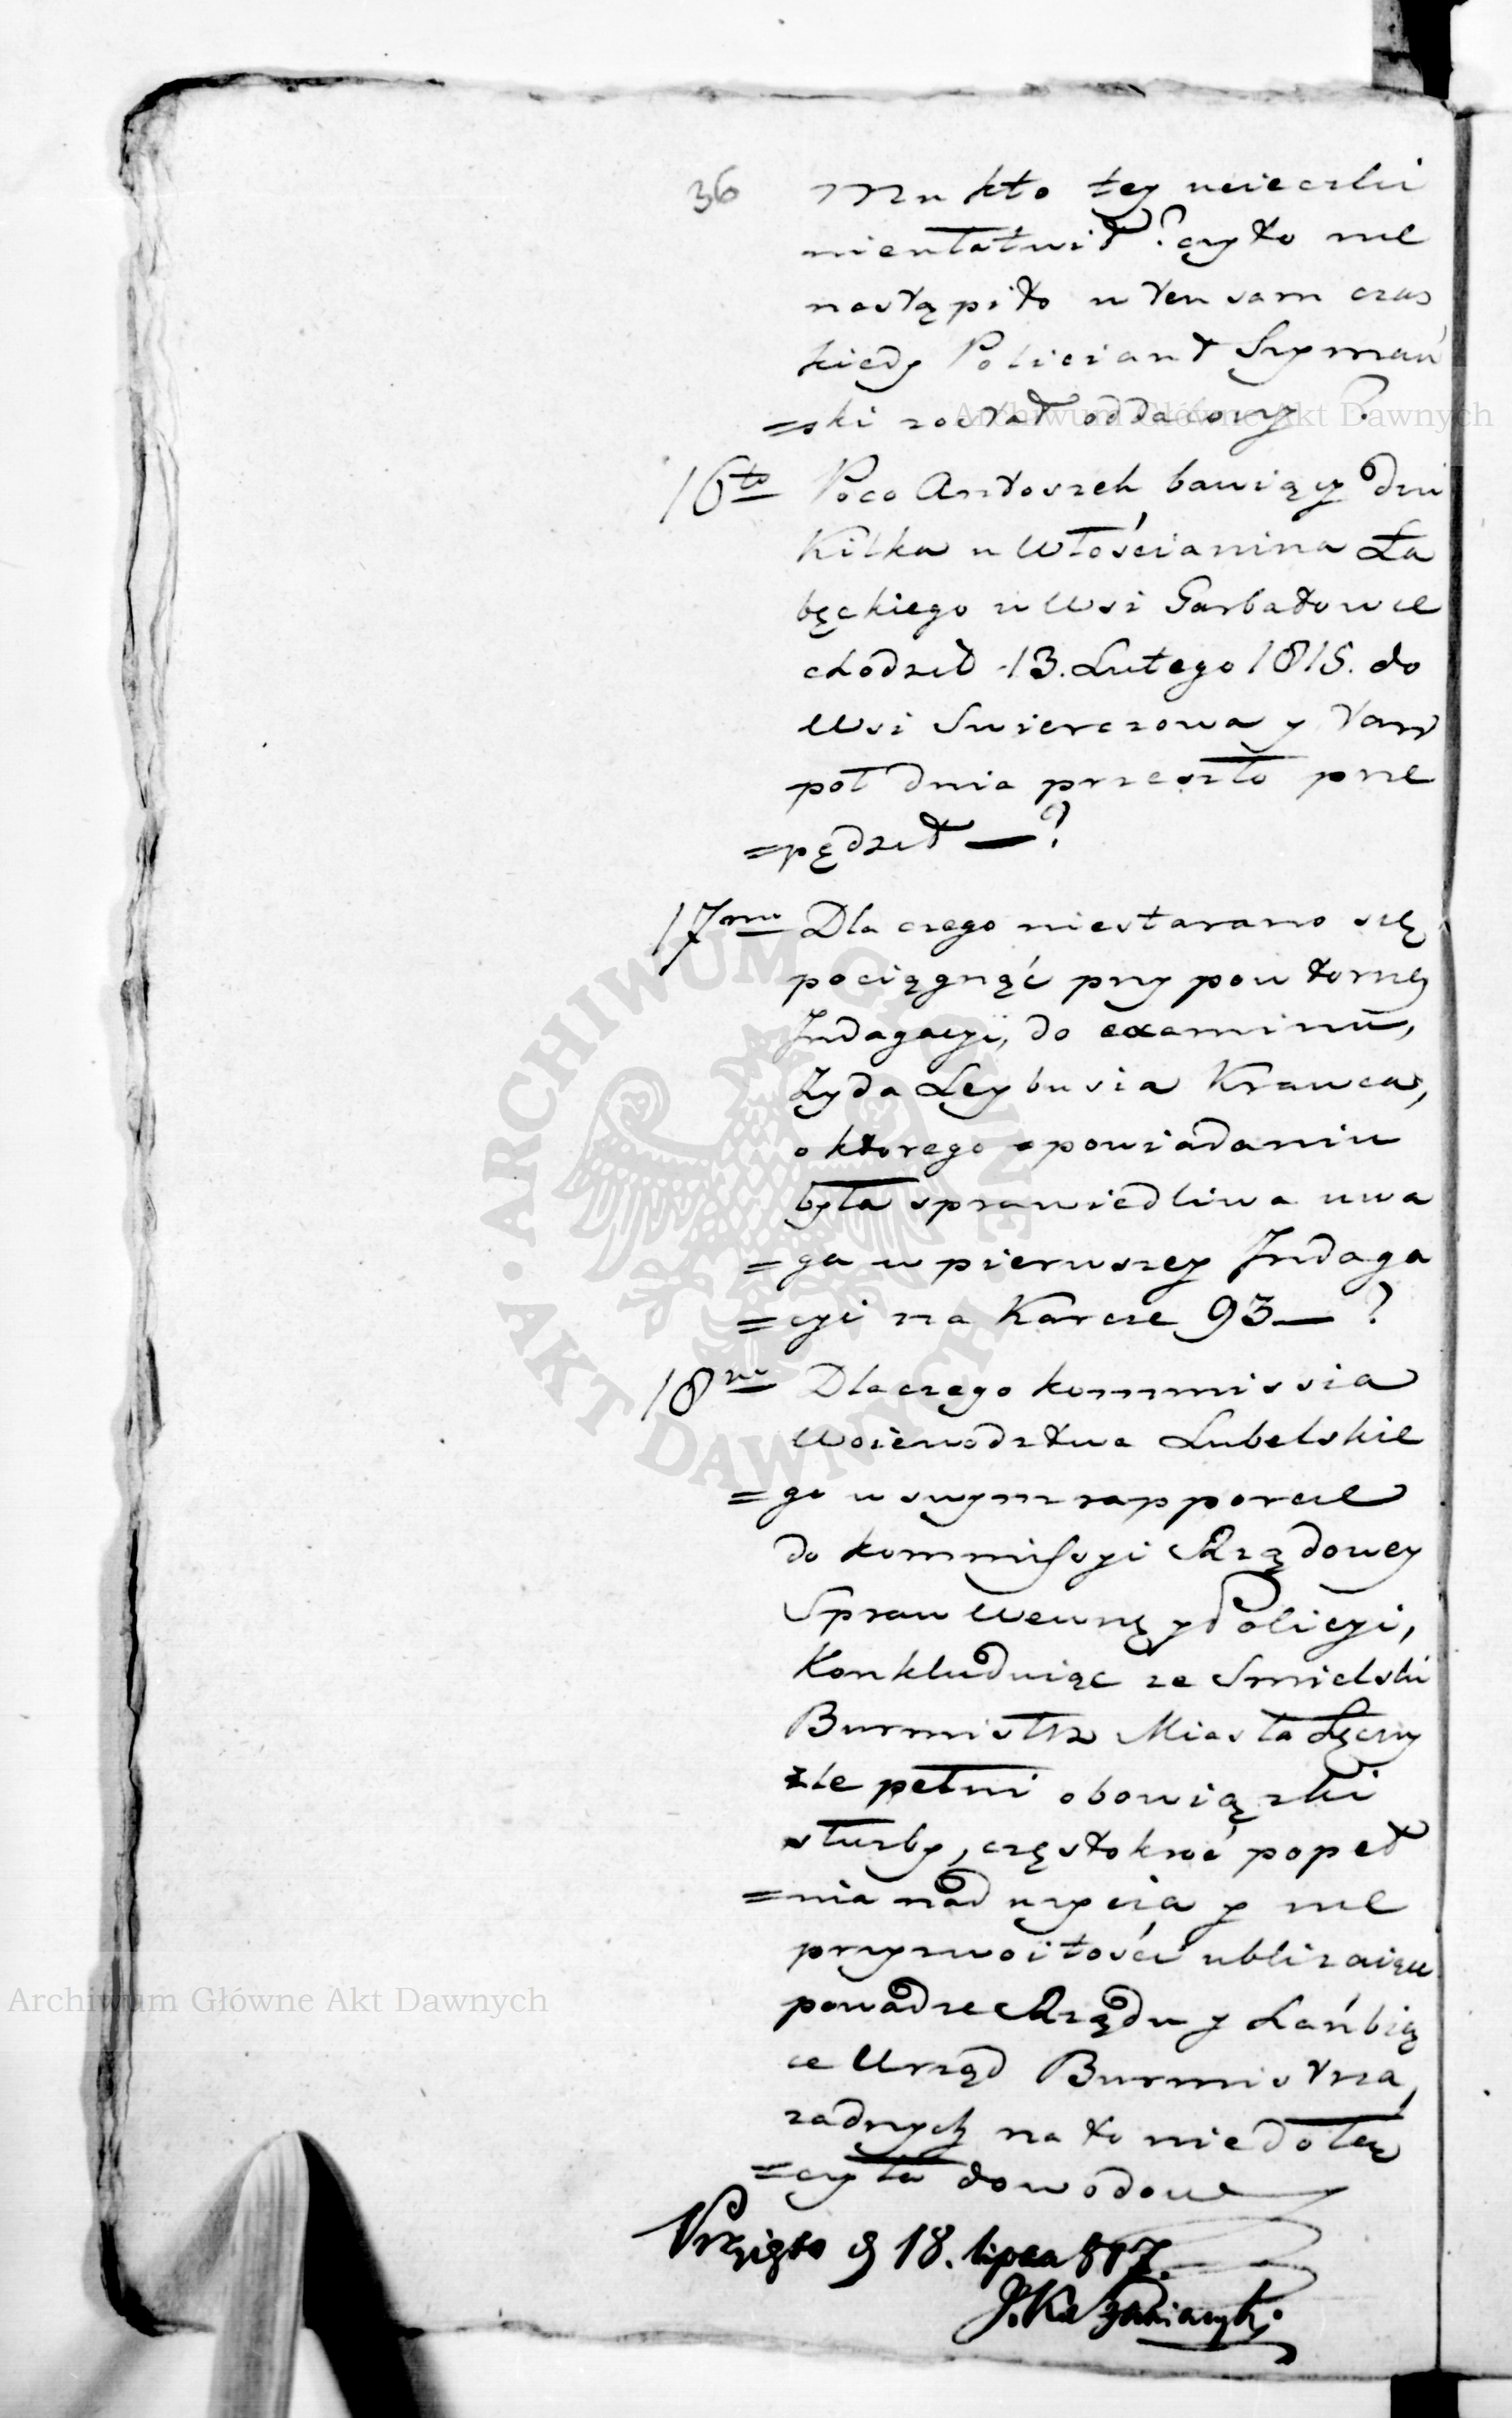 36
Mu kto tey ucieczki
nieułatwił? czyto nie
nastąpiło w ten sam czas,
kiedy Policiant Szymań
=ski został oddalony ?
16to Poco Antoszek bawiący dni
Kilka u Włościanina Ła
bęckiego w Wsi Garbatowce
chodził 13. Lutego 1815. do
Wsi Swierczowa y tam
pół dnia przeszło prze
=pędził — ?
17mo Dla czego niestarano się
pociągnąć przy powtorney
Indagacyi, do examinu,
Żyda Leybusia Krawca,
o ktorego opowiadaniu
była sprawiedliwa uwa
=ga w pierwszey Indaga
=cyi na Karcie 93 — ?
18vo Dlaczego kommissia
Woiewodztwa Lubelskie
=go w swym rapporcie
do kommissyi Rządowey
Spraw Wewnę y Policyi,
Konkluduiąc ze Smielski
Burmistrz Miasta Łęczny
źle pełni obowiązki
służby, częstokroć popeł
=nia nadużycia y nie
przyzwoitości ubliżaiące
powadze Rządu y hańbią
ce Urząd Burmistrza,
żadnych na to niedołą
=czyła dowodow
18. lipca 817.
Archiwum Główne Akt Dawnych
Archiwum Główne Akt Dawnych
ARCHIWUM GŁÓWNE · AKT DAWNYCH ·